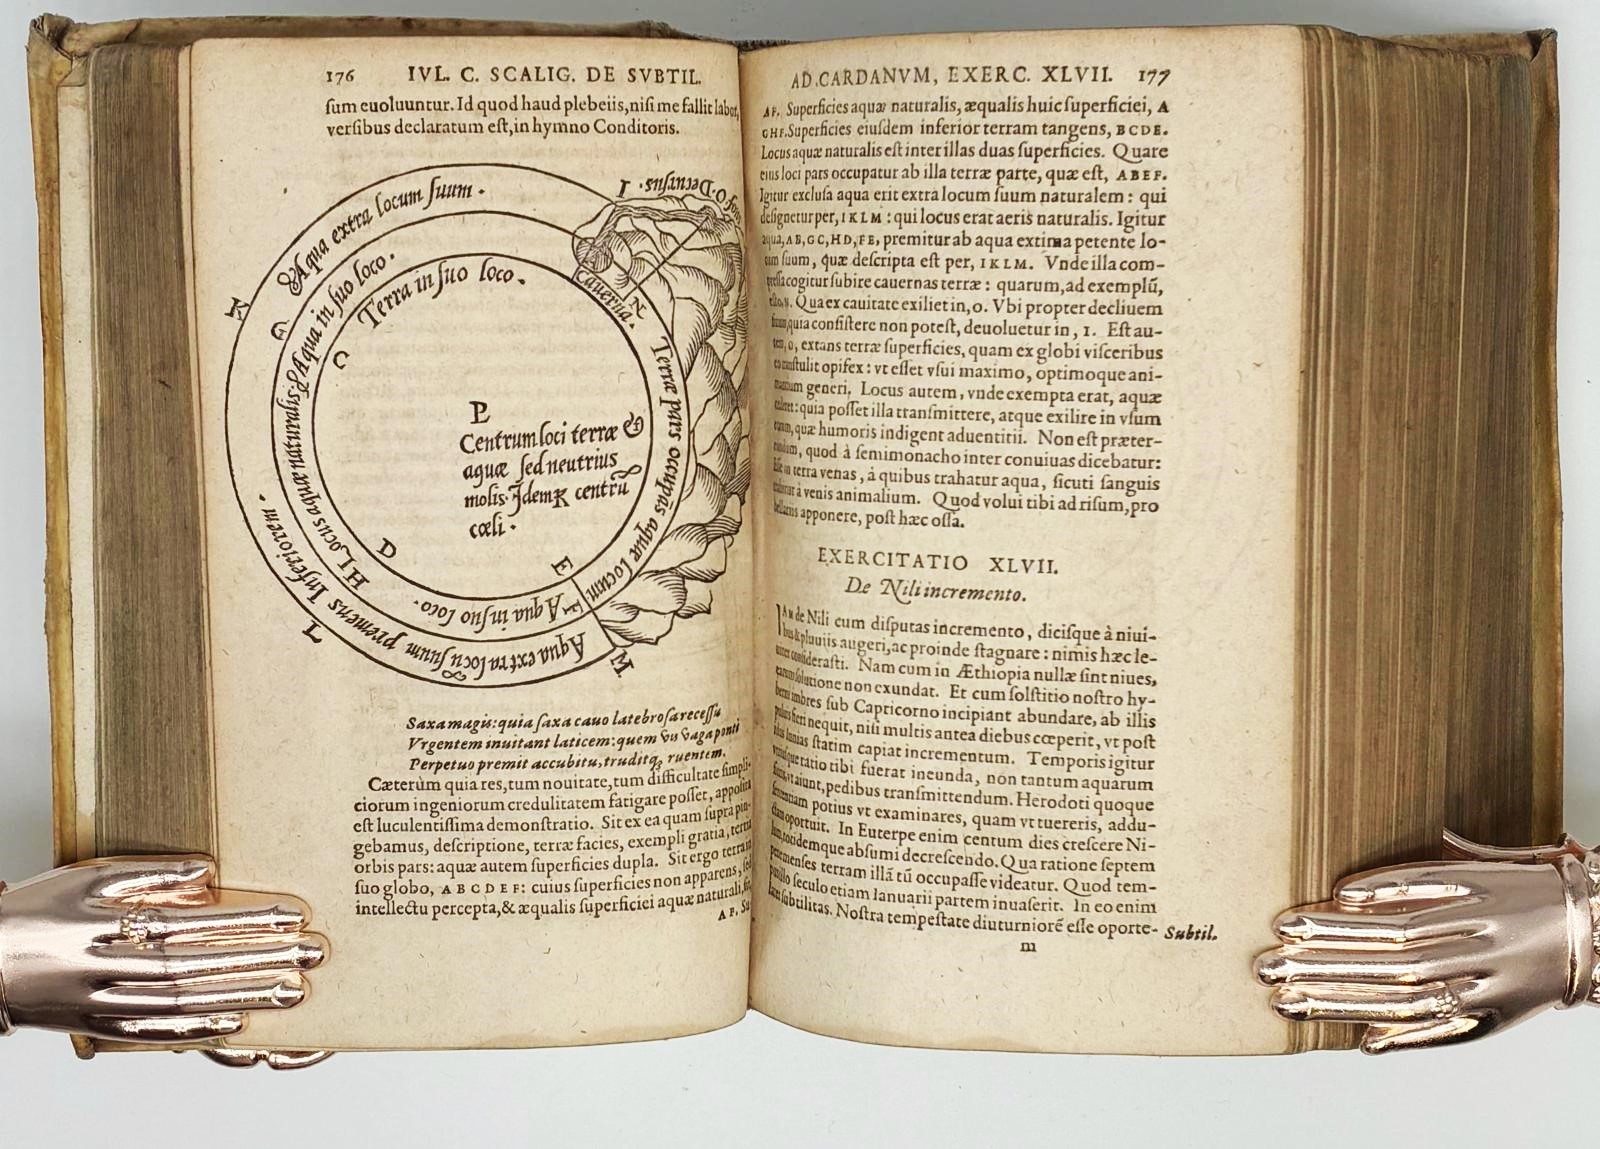 176 IVL. C. SCALIG. DE SVBTIL.
sum euoluuntur. Id quod haud plebeiis, nisi me fallit labor,
versibus declaratum est, in hymno Conditoris.
Aqua extra locum suum.
& Aqua in suo loco.
Terra in suo loco.
Decursus. I
O
Cauerna.
N
K
G
C
P
Centrum loci terræ &
aquæ sed neutrius
molis. Idem & centrũ
cœli.
Terræ pars occupãs aquæ locum
Locus aquæ naturalis.
H
D
E
F
L
M
Aqua in suo loco.
Aqua extra locũ suum premens Inferiorem.
Saxa magis: quia saxa cauo latebrosa recessu
Vrgentem inuitant laticem: quem vis vaga ponti
Perpetuo premit accubitu, truditq; ruentem.
Cæterùm quia res, tum nouitate, tum difficultate simpli-
ciorum ingeniorum credulitatem fatigare posset, apposita
est luculentissima demonstratio. Sit ex ea quam supra pin-
gebamus, descriptione, terræ facies, exempli gratia, terra
orbis pars: aquæ autem superficies dupla. Sit ergo terra in
suo globo, A B C D E F: cuius superficies non apparens, sed
intellectu percepta, & æqualis superficiei aquæ naturali, sit,
A F. Su-
AD CARDANVM, EXERC. XLVII. 177
A F. Superficies aquæ naturalis, æqualis huic superficiei, A
G H F. Superficies eiusdem inferior terram tangens, B C D E.
Locus aquæ naturalis est inter illas duas superficies. Quare
eius loci pars occupatur ab illa terræ parte, quæ est, A B E F.
Igitur exclusa aqua erit extra locum suum naturalem: qui
designetur per, I K L M: qui locus erat aeris naturalis. Igitur
aqua, A B, G C, H D, F E, premitur ab aqua extima petente lo-
cum suum, quæ descripta est per, I K L M. Vnde illa com-
pressa cogitur subire cauernas terræ: quarum, ad exemplũ,
esto, N. Qua ex cauitate exiliet in, O. Vbi propter decliuem
situm, quia consistere non potest, deuoluetur in, I. Est au-
tem, O, extans terræ superficies, quam ex globi visceribus
eo transtulit opifex: vt esset vsui maximo, optimoque ani-
mantium generi. Locus autem, vnde exempta erat, aquæ
cederet: quia posset illa transmittere, atque exilire in vsum
eorum, quæ humoris indigent aduentitii. Non est præter-
eundum, quod à semimonacho inter conuiuas dicebatur:
Esse in terra venas, à quibus trahatur aqua, sicuti sanguis
trahitur à venis animalium. Quod volui tibi ad risum, pro
bellariis apponere, post hæc ossa.
EXERCITATIO XLVII.
De Nili incremento.
IAm de Nili cum disputas incremento, dicisque à niui-
bus & pluuiis augeri, ac proinde stagnare: nimis hæc le-
uiter considerasti. Nam cum in Æthiopia nullæ sint niues,
earum solutione non exundat. Et cum solstitio nostro hy-
berno imbres sub Capricorno incipiant abundare, ab illis
fieri nequit, nisi multis antea diebus cœperit, vt post
statim capiat incrementum. Temporis igitur
ratio tibi fuerat ineunda, non tantum aquarum
aiunt, pedibus transmittendum. Herodoti quoque
sententiam potius vt examinares, quam vt tuereris, addu-
ctam oportuit. In Euterpe enim centum dies crescere Ni-
lum, totidemque absumi decrescendo. Qua ratione septem
pene menses terram illã tũ occupasse videatur. Quod tem-
pusillo seculo etiam Ianuarii partem inuaserit. In eo enim
subtilitas. Nostra tempestate diuturniorẽ esse oporte-
Subtil.
m